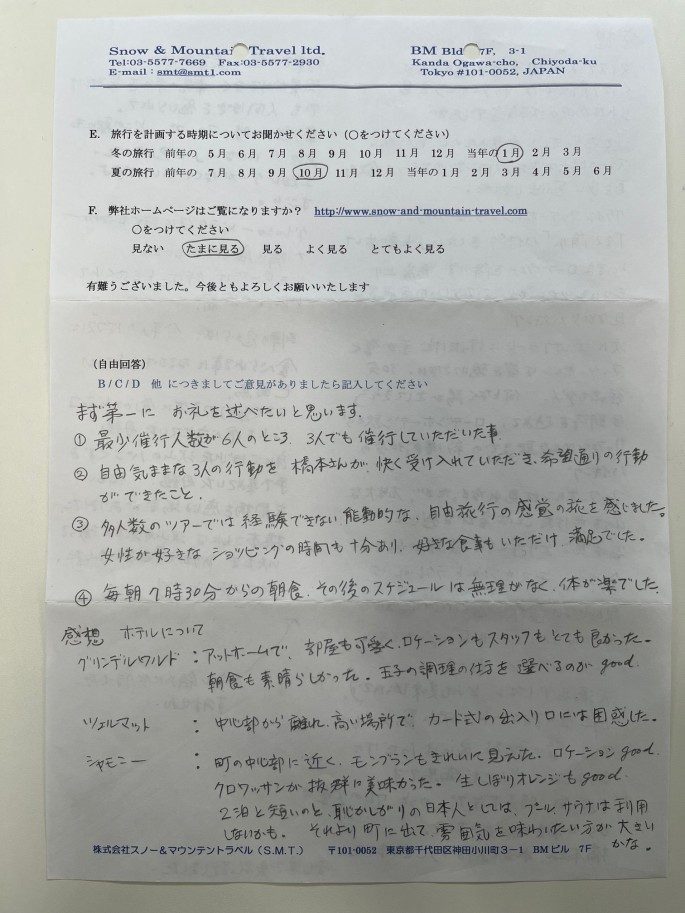 Snow & Mountain Travel ltd.
Tel:03-5577-7669 Fax:03-5577-2930
E-mail : smt@smt1.com
BM Bld 7F, 3-1
Kanda Ogawa-cho, Chiyoda-ku
Tokyo #101-0052, JAPAN
E. 旅行を計画する時期についてお聞かせください（○をつけてください）
冬の旅行 前年の 5月 6月 7月 8月 9月 10月 11月 12月 当年の 1月 2月 3月
夏の旅行 前年の 7月 8月 9月 10月 11月 12月 当年の 1月 2月 3月 4月 5月 6月
F. 弊社ホームページはご覧になりますか？ http://www.snow-and-mountain-travel.com
○をつけてください
見ない たまに見る 見る よく見る とてもよく見る
有難うございました。今後ともよろしくお願いいたします
（自由回答）
B / C / D 他 につきましてご意見がありましたら記入してください
まず第一に お礼を述べたいと思います.
① 最少催行人数が6人のところ、3人でも催行していただいた事.
② 自由気ままな3人の行動を 橋本さんが、快く受け入れていただき、希望通りの行動
ができたこと.
③ 多人数のツアーでは経験できない能動的な、自由旅行の感覚の旅を感じれた。
女性が好きな ショッピングの時間も十分あり、好きな食事もいただけ、満足でした。
④ 毎朝7時30分からの朝食、その後のスケジュールは無理がなく、体が楽でした.
感想 ホテルについて
グリンデルワルド：アットホームで、部屋も可愛く、ロケーションもスタッフもとても良かった。
朝食も素晴らしかった。玉子の調理の仕方を選べるのが good.
ツェルマット ： 中心部から離れ、高い場所で、カード式の出入り口には困惑した。
シャモニー ： 町の中心部に近く、モンブランもきれいに見えた. ロケーション good.
クロワッサンが抜群に美味かった。生しぼりオレンジも good.
2泊と短いのと、恥かしがりの日本人としては、プール、サウナは利用
しないかも。それより町に出て、雰囲気を味わいたい方が大きい
かな。
株式会社スノー＆マウンテントラベル（S.M.T.） 〒101-0052 東京都千代田区神田小川町３－１ BMビル 7F